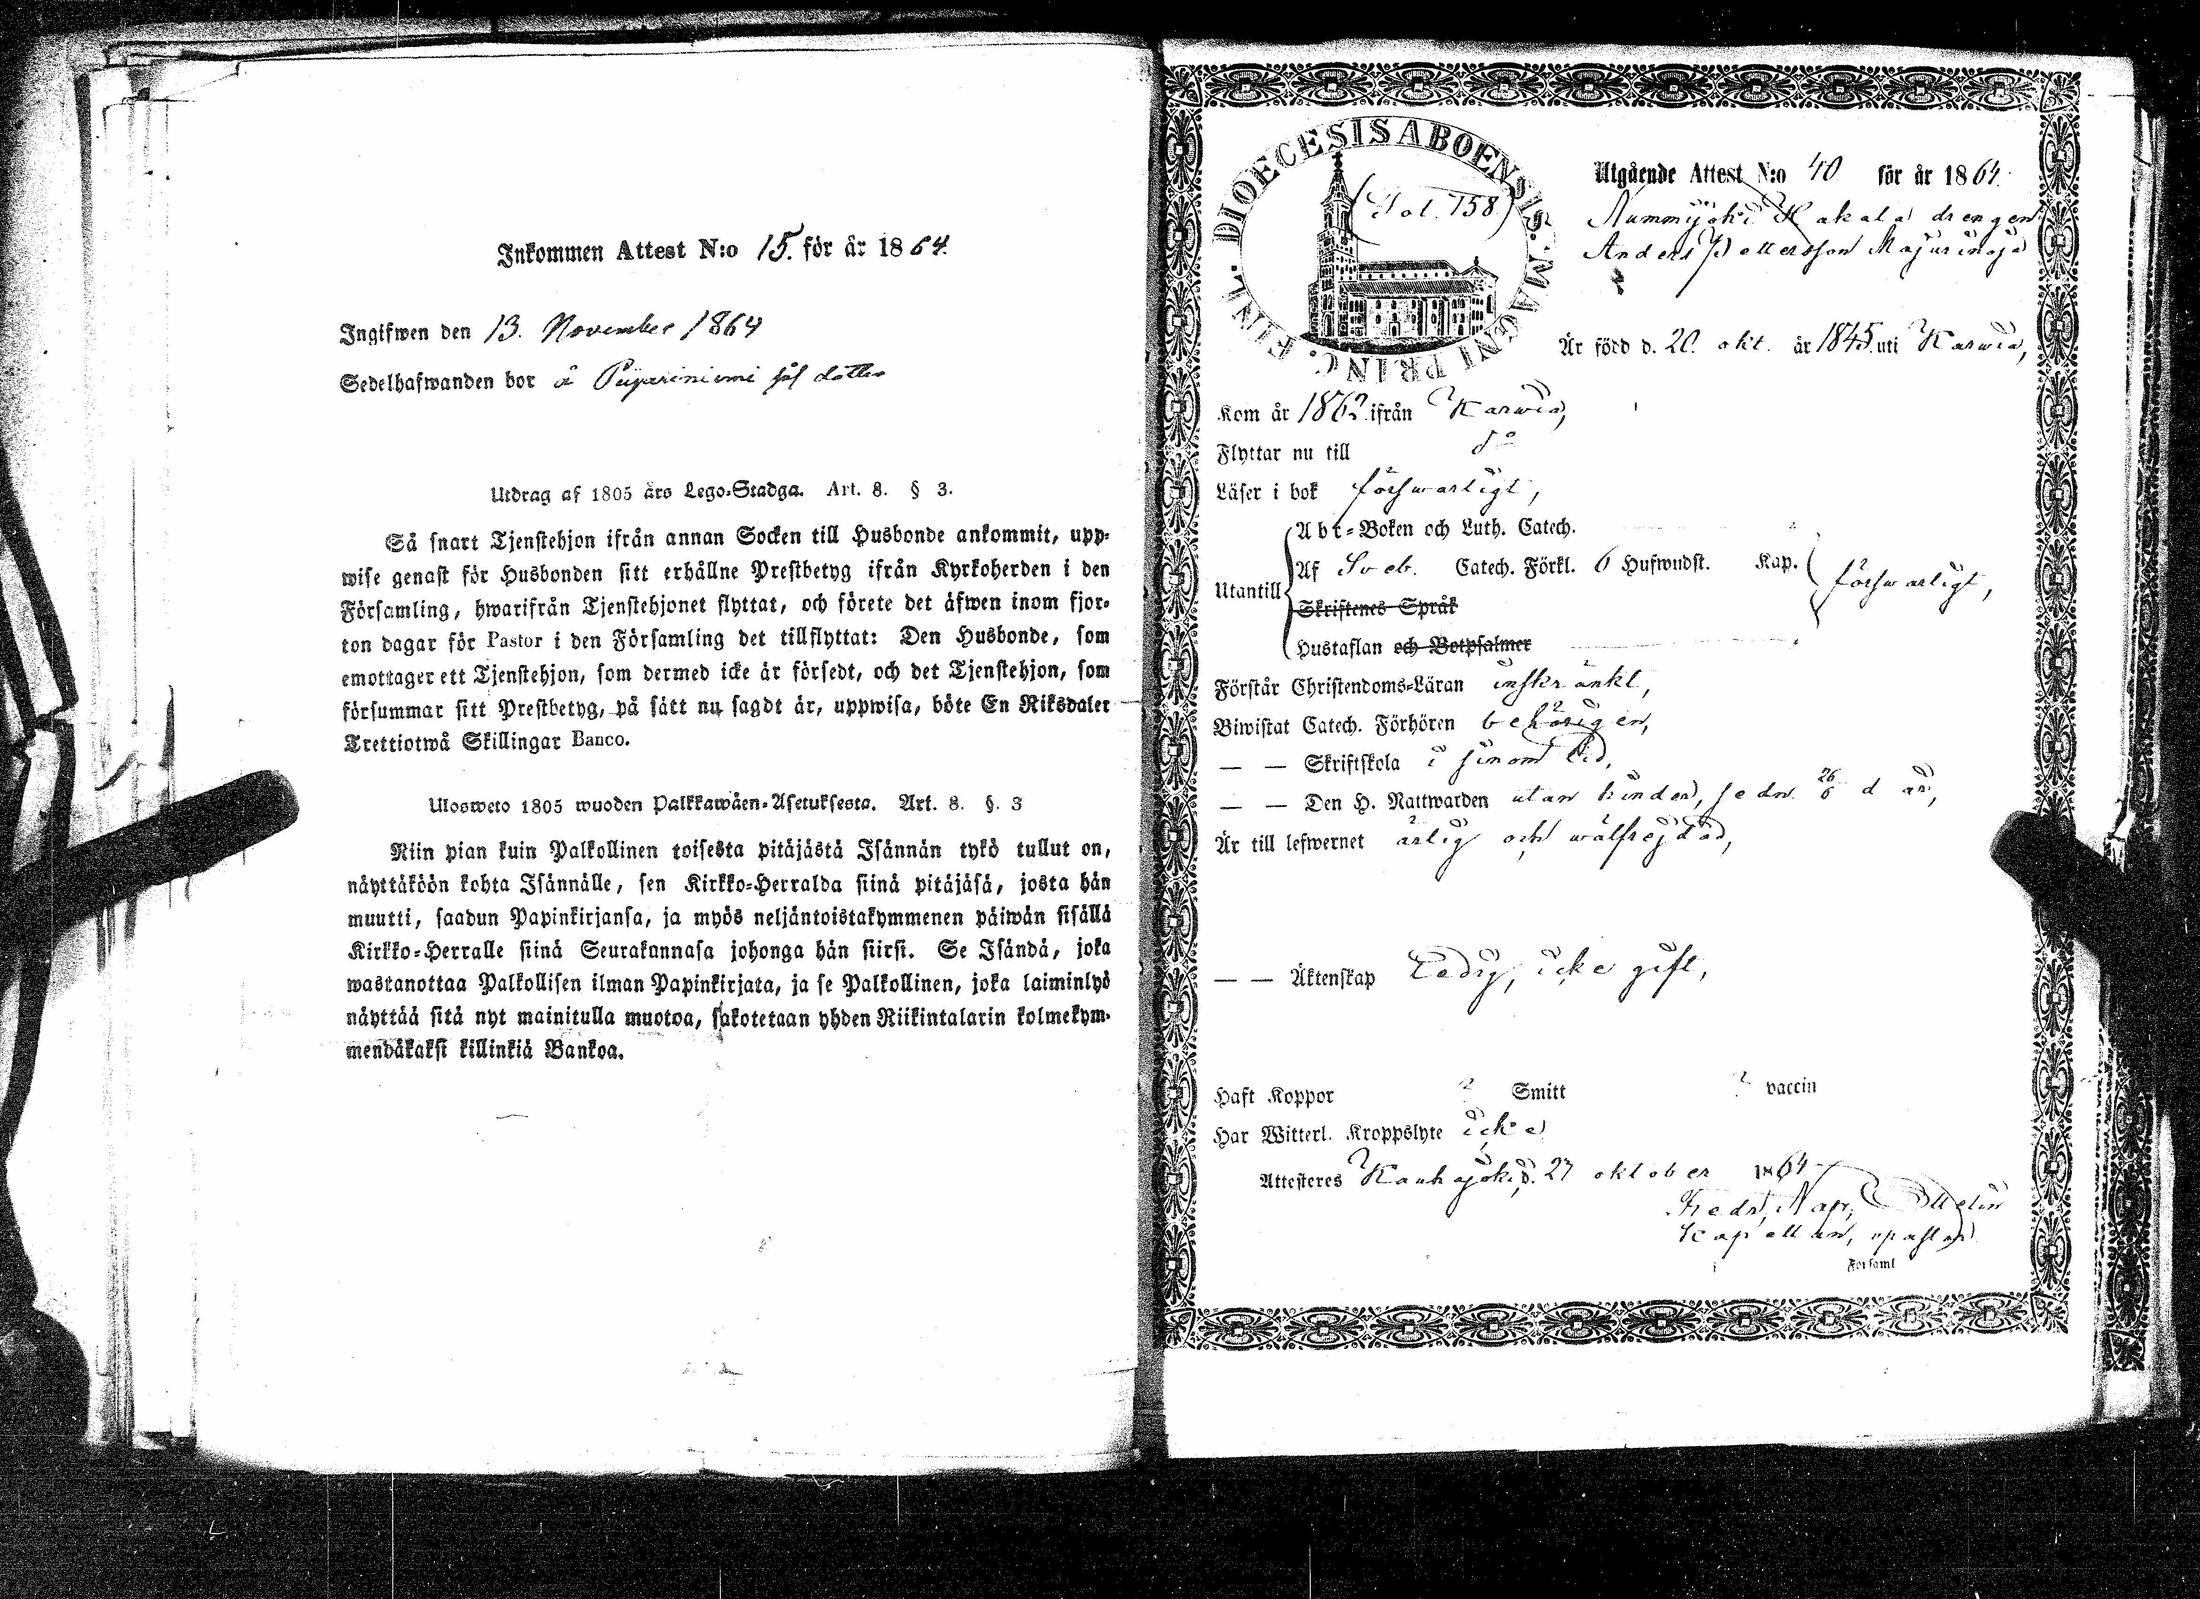 Inkommen Attest N:o 15. för år 1864.
Ingifwen den 13. November 1864
Sedelhafwanden bor å
Utdrag af 1805 års Lego-Stadga. Art. 8. § 3.
Så snart Tjenstehjon ifrån annan Socken till Husbonde ankommit, upp-
wise genast för Husbonden sitt erhållne Prestbetyg ifrån Kyrkoherden i den
Församling, hwarifrån Tjenstehjonet flyttat, och förete det äfwen inom fjor-
ton dagar för Pastor i den Församling det tillflyttat: Den Husbonde, som
emottager ett Tjenstehjon, som dermed icke är försedt, och det Tjenstehjon, som
försummar sitt Prestbetyg, på sätt nu sagdt är, uppwisa, böte En Riksdaler
Trettiotwå Skillingar Banco.
Ulosweto 1805 wuoden Palkkawäen-Asetuksesta. Art. 8. §. 3
Niin pian kuin Palkollinen toisesta pitäjästä Isännän tykö tullut on,
näyttäköön kohta Isännälle, sen Kirkko-Herralda siinä pitäjäsä, josta hän
muutti, saadun Papinkirjansa, ja myös neljäntoistakymmenen päiwän sisällä
Kirkko-Herralle siinä Seurakunnasa johonga hän siirsi. Se Isändä, joka
wastanottaa Palkollisen ilman Papinkirjata, ja se Palkollinen, joka laiminlyö
näyttää sitä nyt mainitulla muotoa, sakotetaan yhden Riikintalarin kolmekym-
mendäkaksi killinkiä Bankoa.
DIOECESIS ABOENSIS. MAGNI PRINC. FINL.
(Fol. 158)
Utgående Attest N:o 40 för år 1864.
Nummijoki Hakala drengen
Anders Pettersson Majurinoja
Är född d. 20. okt. år 1845. uti Karwia,
Kom år 1862 ifrån Karwia,
Flyttar nu till do
Läser i bok förswarligt,
Abt-Boken och Luth. Catech.
Utantill Af Sveb. Catech. Förkl. 6 Hufwudst. Kap. förswarligt,
Skriftenes Språk
Hustaflan och Botpsalmer
Förstår Christendoms-Läran inskränkt,
Biwistat Catech. Förhören behörigen,
— — Skriftskola i sinom tid,
— — Den H. Nattwarden utan hinder, sedn. 26/6 d. år,
Är till lefwernet ärlig och wälfrejdad,
— — Äktenskap Ledig, icke gift,
Haft Koppor ? Smitt ? vaccin
Har Witterl. Kroppslyte icke
Attesteres Kauhajoki, d. 27 oktober 1864.
Fredr. Nap.
Kapellan,
Församl